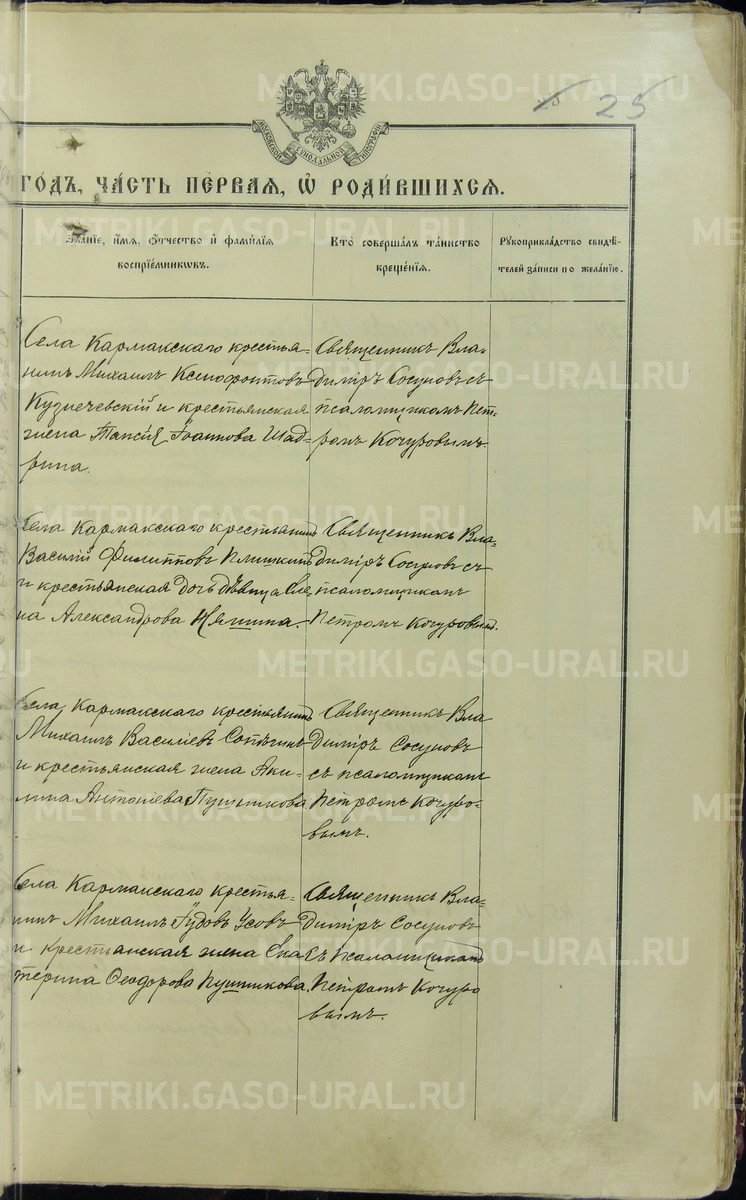 25
МОСКОВСКОЙ СѴНОДАЛЬНОЙ ТИПОГРАФІИ
ГО́ДЪ, ЧА́СТЬ ПЕ́РВАЯ, Ѿ РОДИ́ВШИХСЯ.
Зва́нїе, и҆́мѧ, ѻ҆́тчество и҆ фами́лїѧ
воспрїе́мникѡвъ.
Кто̀ соверша́лъ та́инство
креще́нїѧ.
Рꙋкоприкла́дство свидѣ́-
телей за́писи по жела́нїю.
Села Кармакскаго крестья-
нинъ Михаилъ Ксенофонтовъ
Кузнечевскій и крестьянская
жена Таисія Іоаннова Шад-
рина.
Священникъ Вла-
димиръ Сосуновъ съ
псаломщикомъ Пет-
ромъ Кочуровымъ.
Села Кармакскаго крестьянинъ
Василій Филипповъ Плишкинъ
и крестьянская дочь дѣвица Еле
на Александрова Няшина.
Священникъ Вла-
димиръ Сосуновъ съ
псаломщикомъ
Петромъ Кочуровымъ.
Села Кармакскаго крестьянинъ
Михаилъ Василіевъ Сопѣгинъ
и крестьянская жена Аки-
лина Антоніева Пушникова
Священникъ Вла
димиръ Сосуновъ
съ псаломщикомъ
Петромъ Кочуро-
вымъ.
Села Кармакскаго крестья-
нинъ Михаилъ Іудовъ Усовъ
и крестьянская жена Ека
терина Ѳеодорова Пушникова.
Священникъ Вла-
димиръ Сосуновъ
съ псаломщикомъ
Петромъ Кочуро
вымъ.
METRIKI.GASO-URAL.RU